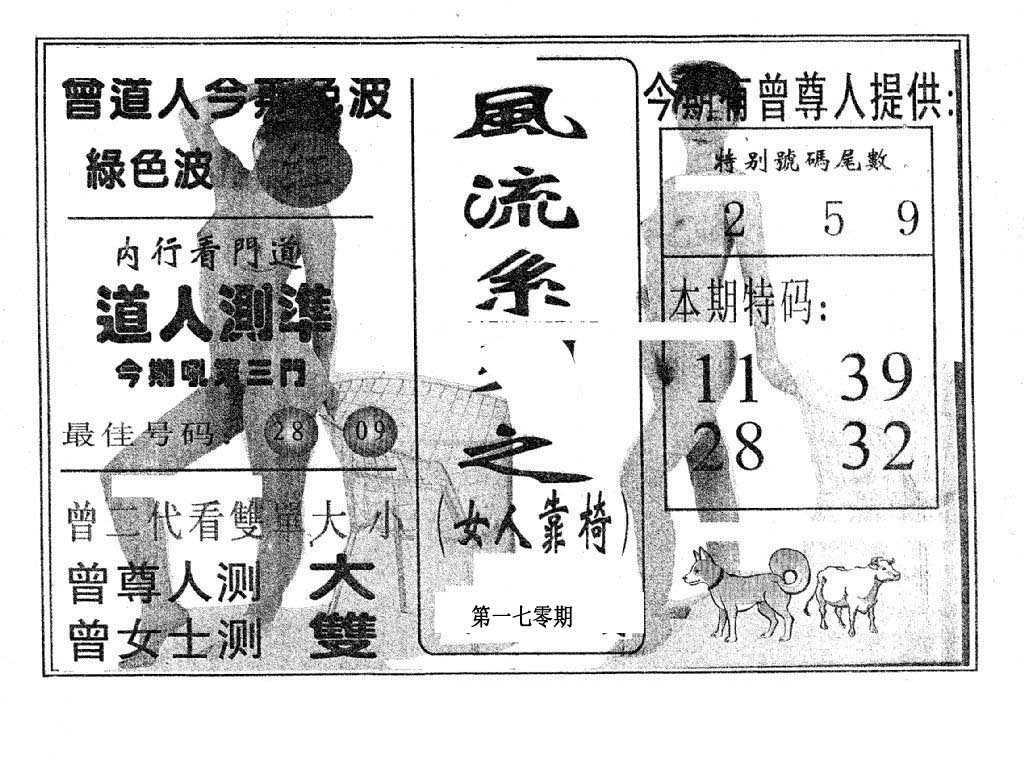 曾道人今期色波
綠色波
内行看門道
道人測準
今期吼第三門
最佳号码: 28 09
曾二代看雙單大小
曾尊人测 大
曾女士测 雙
風流系
之
(女人靠椅)
第一七零期
今期有曾尊人提供:
特别號碼尾數
2 5 9
本期特码:
11 39
28 32